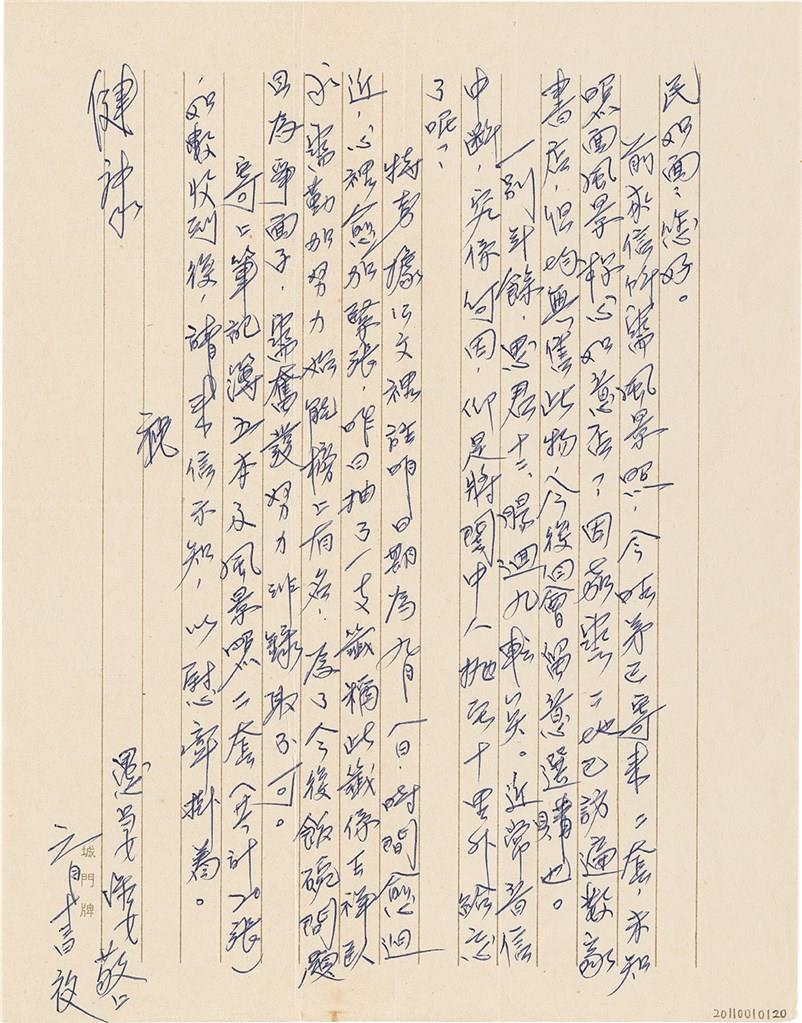 民如面:您好。
前來信所需風景照,今 弟已寄來二套,未知
照面風景稱心如意否?因 二地已訪遍數家
書店,但均無售此物,今後回會留意選購也。
一別 餘,思君 腸迴九轉矣。近常音信
中斷,究係何因,仰是將 中人拋至十里外給忘
了呢?
特考據公文裡註明日期為九月一日,時間愈迫
近,心裡愈加緊張,昨日抽了一支籤稱此籤係
示需勤加努力始能榜上有名,為了今後飯碗問題
且為爭面子,需奮發努力非錄取不可。
寄上筆記簿五本及風景照二套(共計20張)
如數收到後,請來信示知,以慰 掛 。
祝
健康
愚弟 敬上
月 書夜
城門牌
20110010120